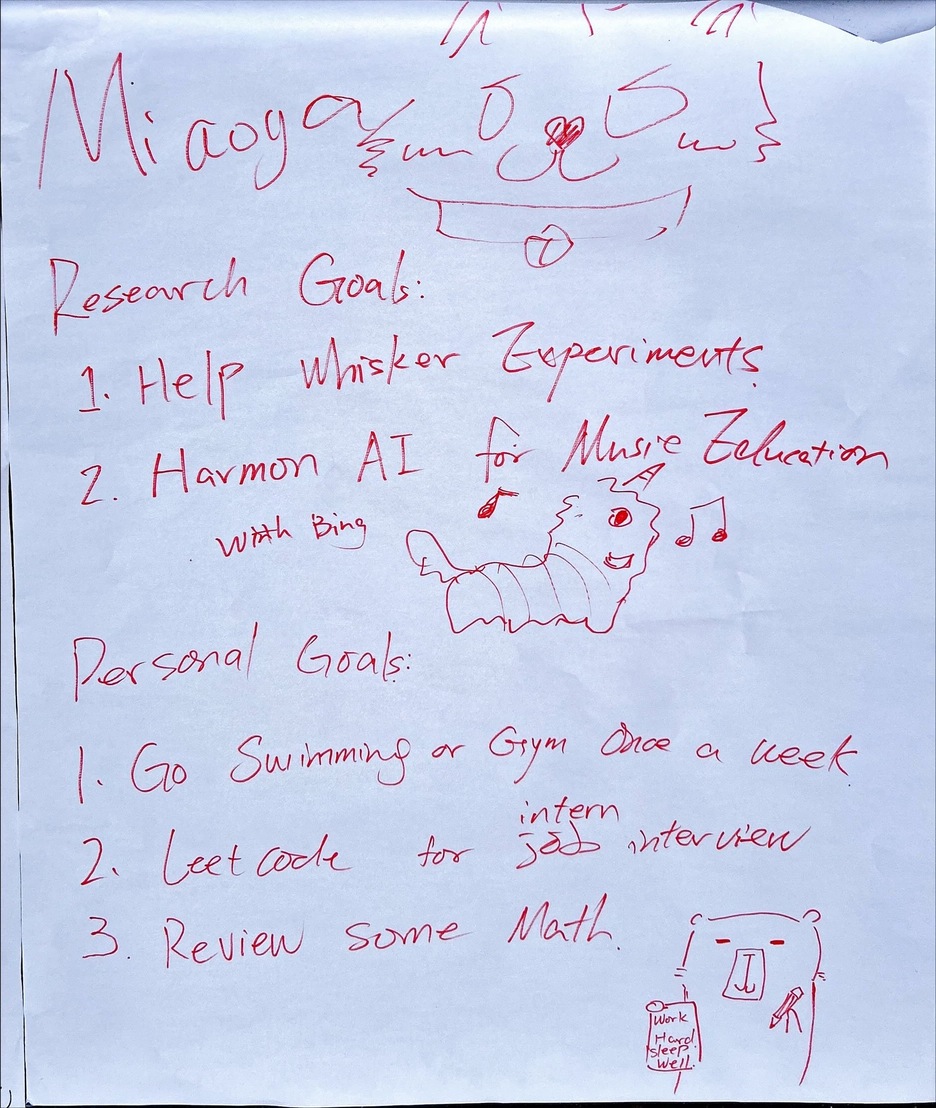 Miaoya
Research Goals:
1. Help Whisker Experiments
2. Harmon AI for Music Education
with Bing
Personal Goals:
1. Go Swimming or Gym Once a week
intern
2. Leetcode for job interview
3. Review some Math.
Work
Hard
sleep
well